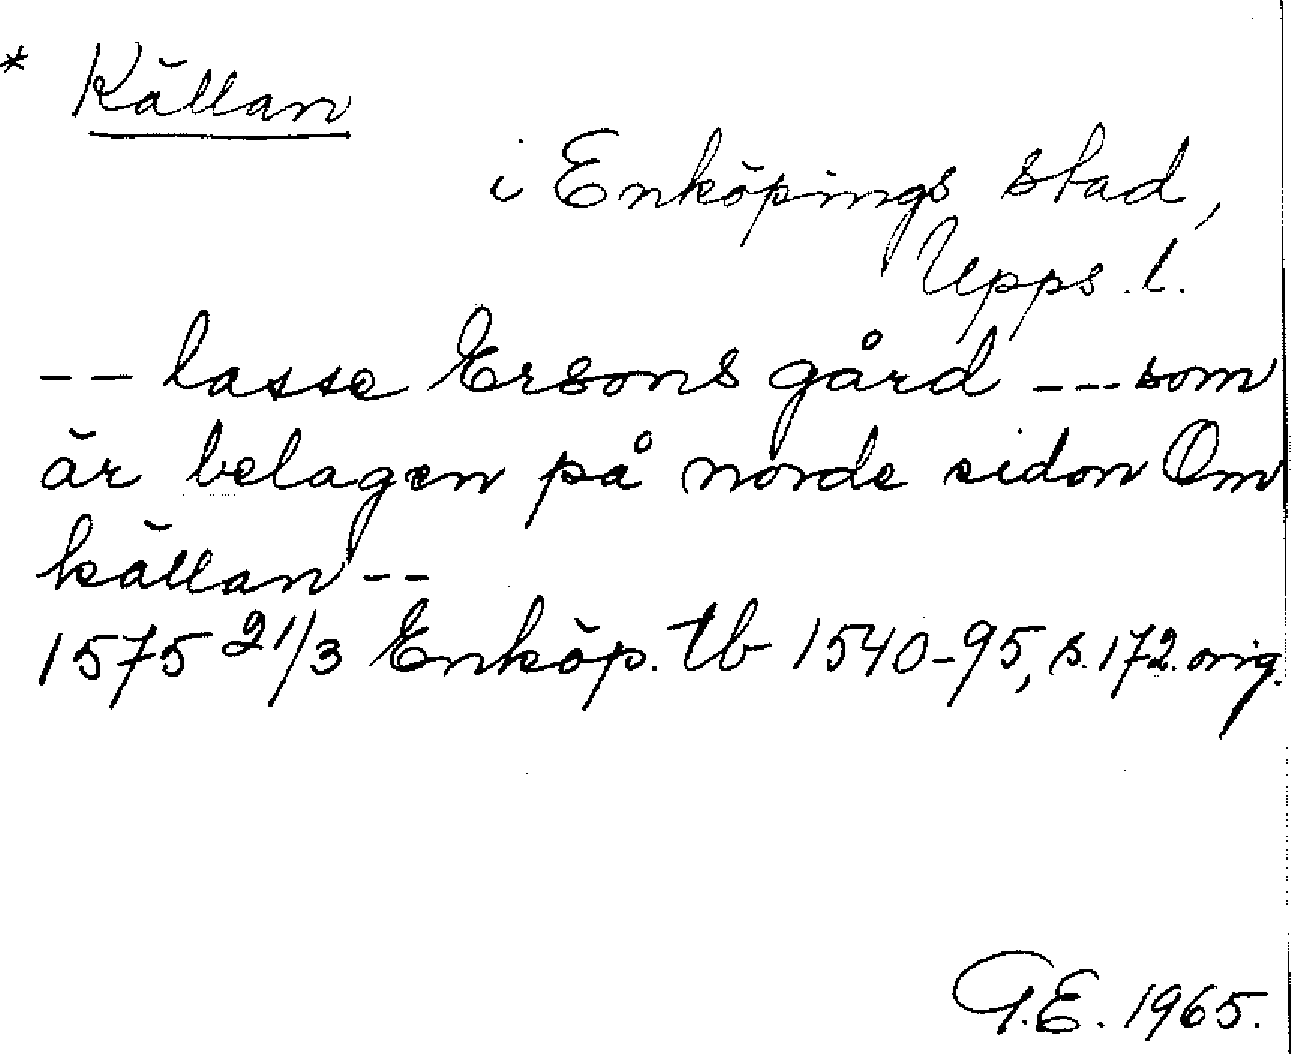 * Källan
i Enköpings stad,
Upps. l.
-- lasse Ersons gård --- som
är belagen på norde sidon Om
källan --
1575 21/3 Enköp. tb 1540-95, s. 172 orig.
G.E. 1965.